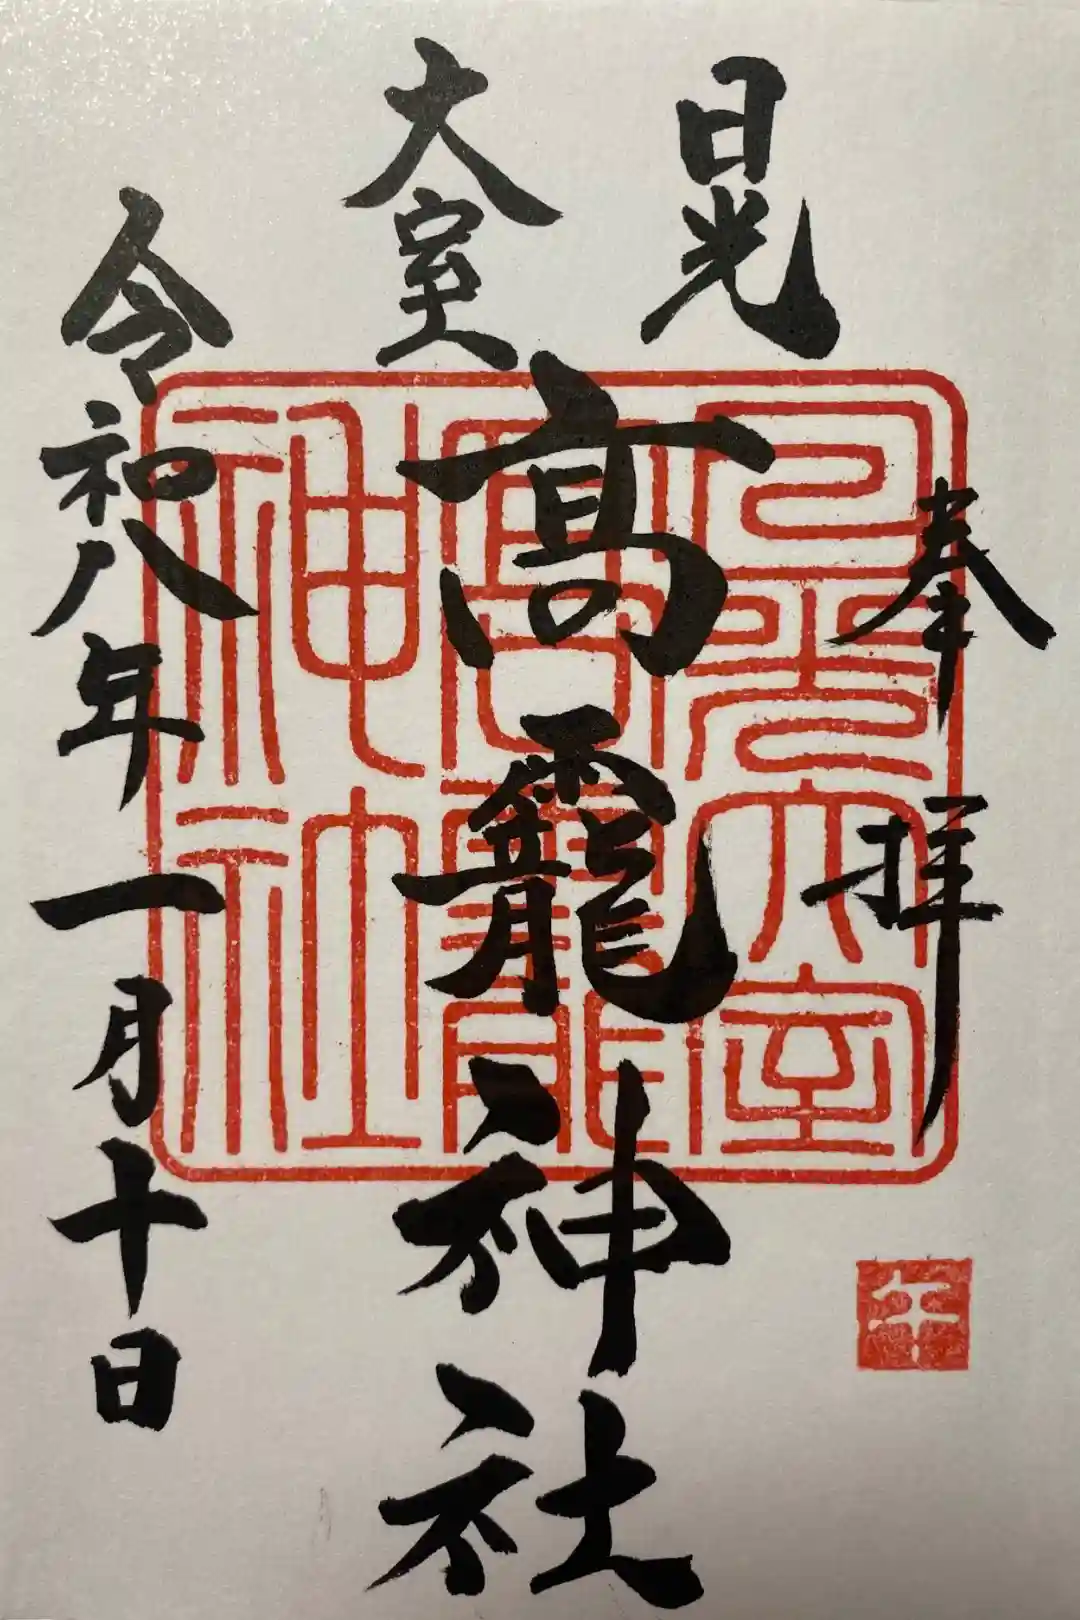 日光
奉拝
大室
髙龗神社
令和八年一月十日
日光大室
高龗
神社
午